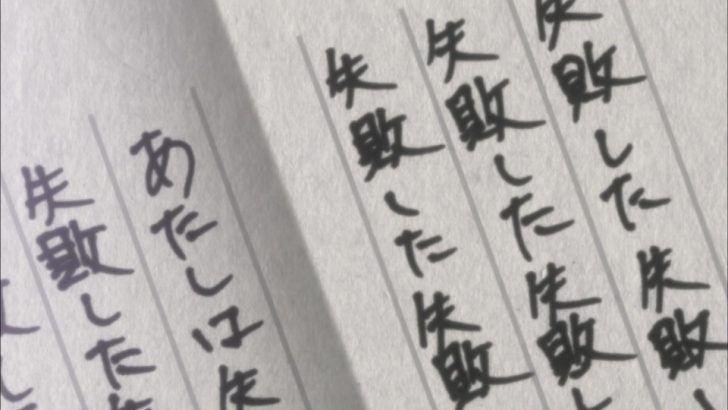 失敗した失敗し
失敗した失敗し
失敗した失敗
あたしは失
失敗した失